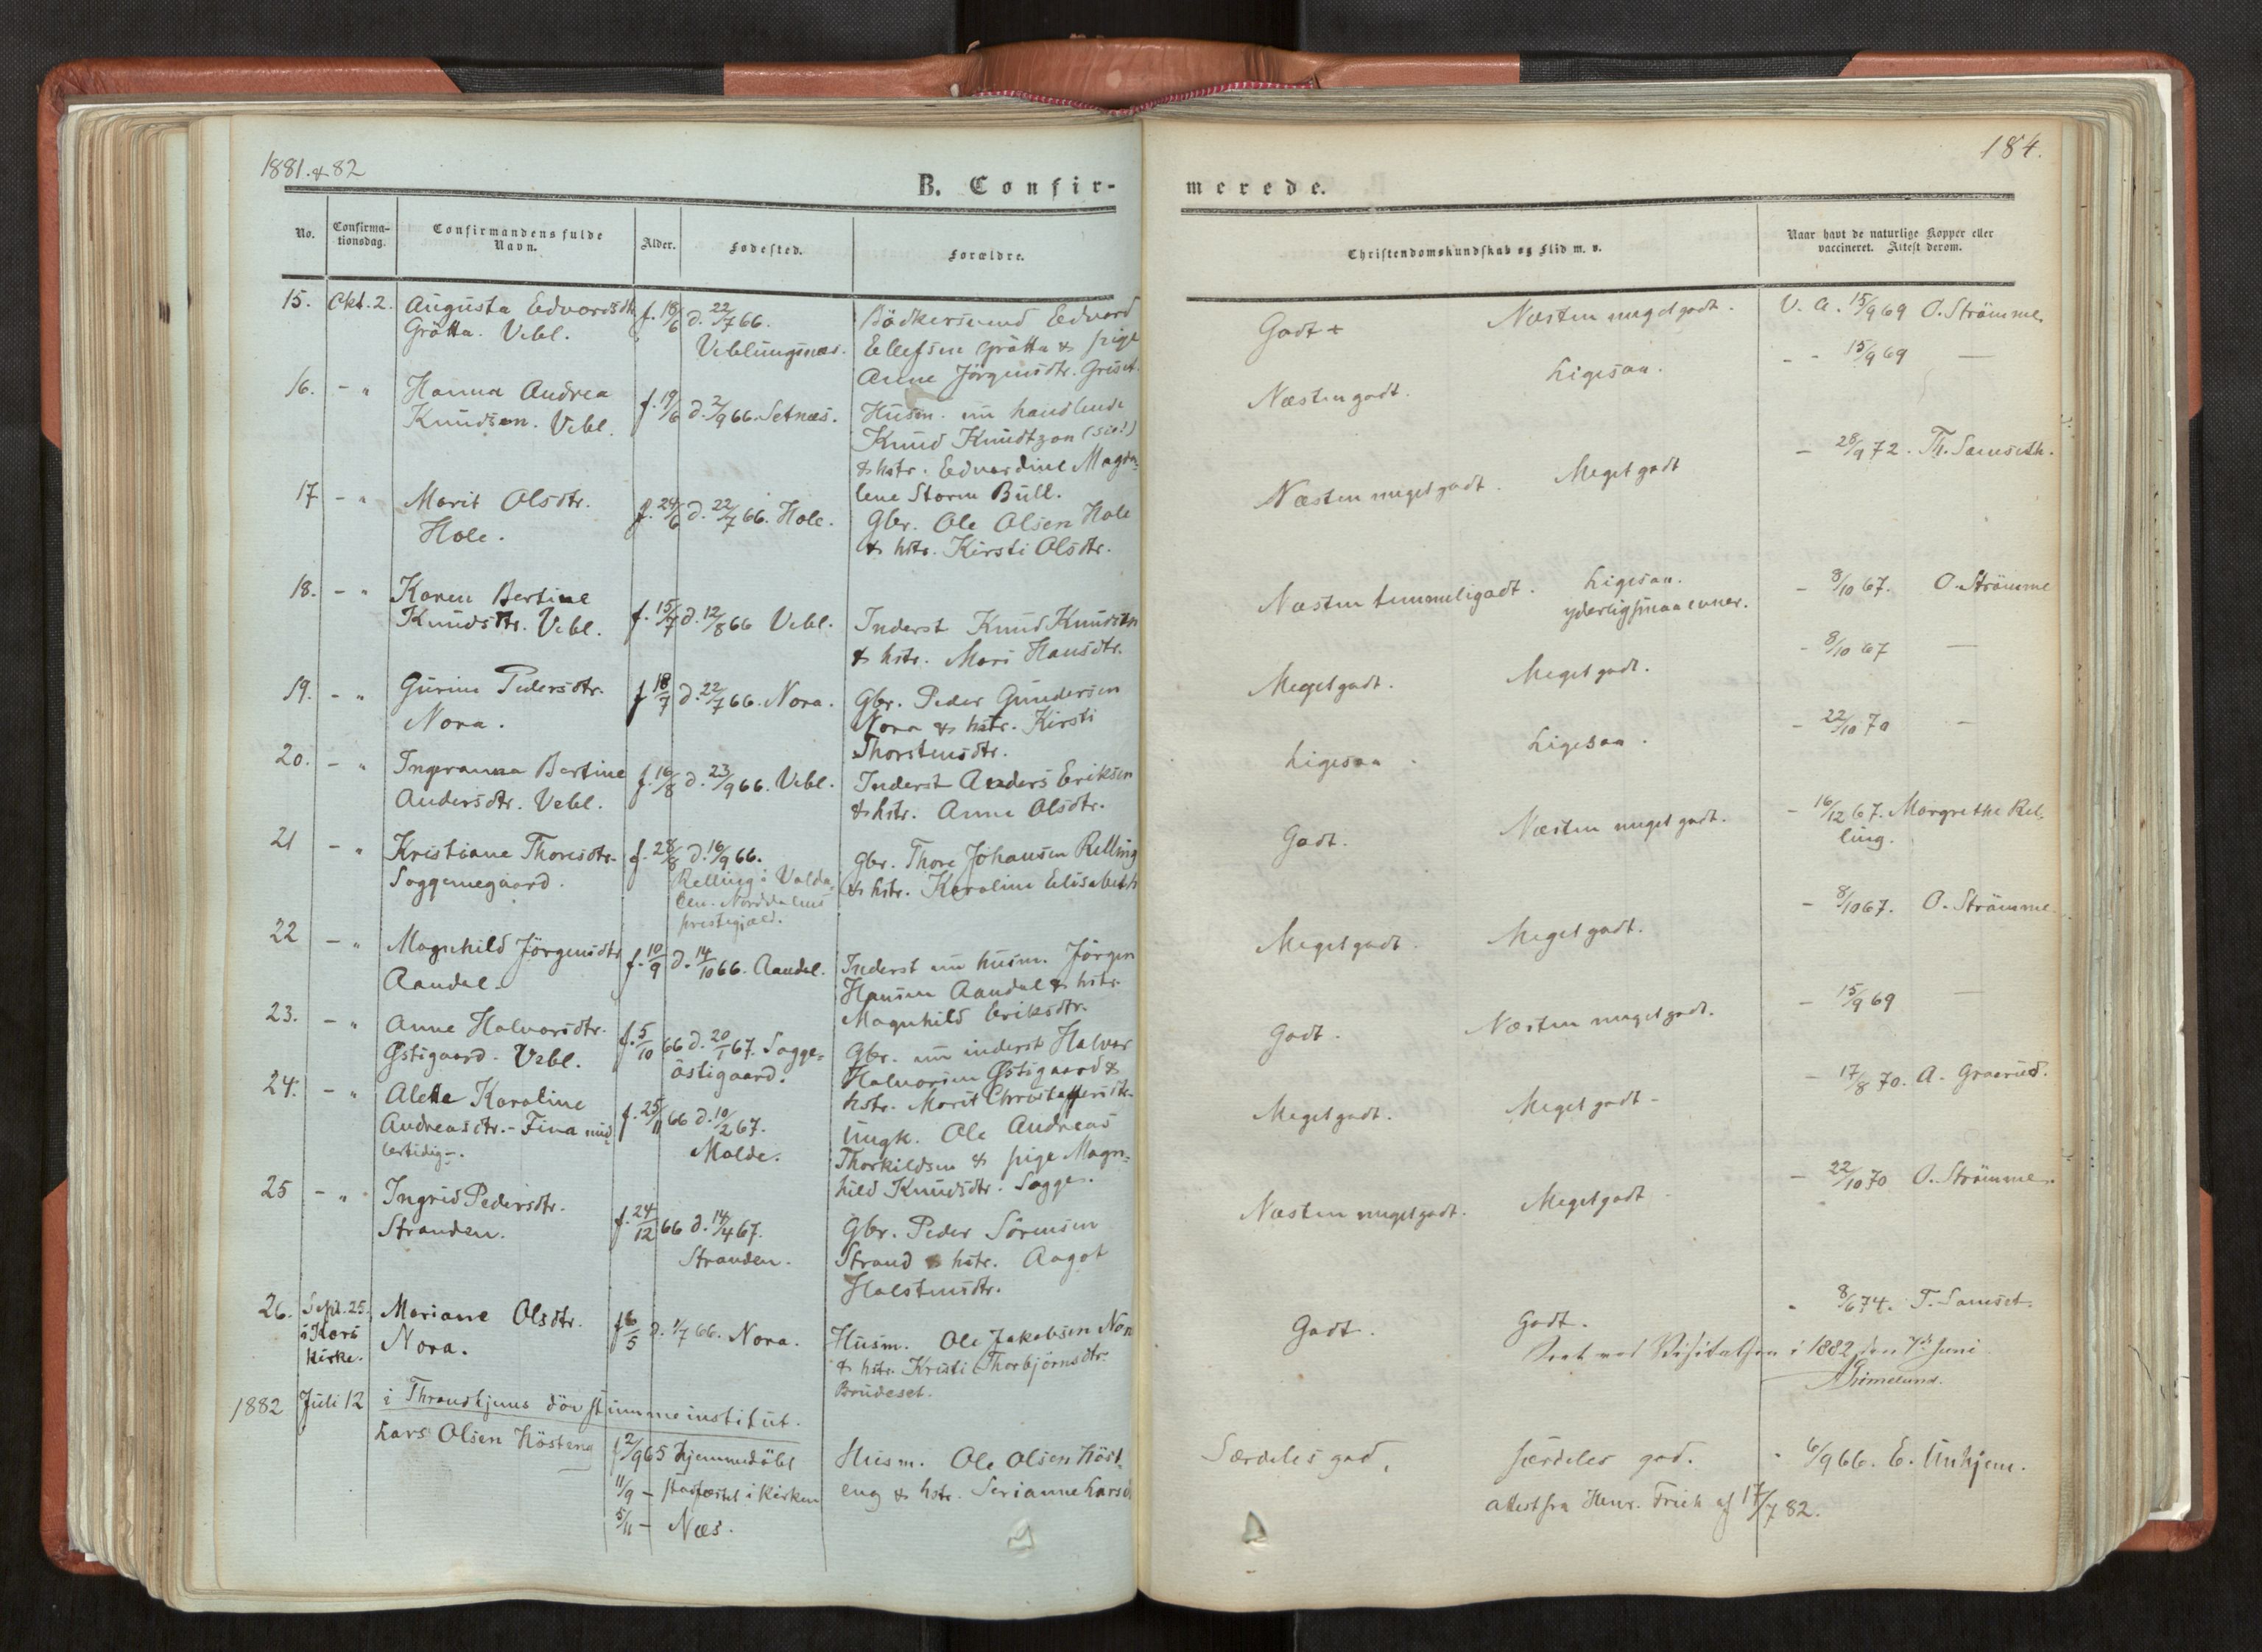 1881.&82
B. Confir-
No.
Confirma-
tionsdag.
Confirmandens fulde
Navn.
Alder.
Fødested.
Forældre.
15. Okt. 2. Augusta Edvardsdtr. f. 18/6 d. 22/7 66. Bödkersvend Edvard
Grötta. Vebl. Veblungsnæs. Ellefsen Grötta & pige
Anne Jörgensdtr. Griset.
16. - " Hanna Andrea f. 19/6 d. 2/9 66. Setnæs. Husm. nu handlende
Knudsen. Vebl. Knud Knudtzon (sic!)
& hstr. Edvardine Magda-
lene Storm Bull.
17 - " Marit Olsdtr. f. 24/6 d. 22/7 66. Hole. Gbr. Ole Olsen Hole
Hole. & hstr. Kirsti Olsdtr.
18. - " Karen Bertine f. 15/7 d. 12/8 66 Vebl. Inderst Knud Knudsen
Knudsdtr. Vebl. & hstr. Mari Hansdtr.
19. - " Gurine Pedersdtr. f 18/7 d. 22/7 66. Nora. Gbr. Peder Gundersen
Nora. Nora & hstr. Kirsti
Thorstensdtr.
20. - " Ingeranna Bertine f. 16/8 d. 23/9 66. Vebl. Inderst Anders Eriksen
Andersdtr. Vebl. & hstr. Anne Olsdtr.
21 - " Kristiane Thoresdtr. f. 28/8 d. 16/9 66. Gbr. Thore Johansen Relling
Soggemegaard. Relling i Valda- & hstr. Karoline Elisabeth
len. Norddalens
prestegjæld.
22 - " Magnhild Jörgensdtr. f. 10/9 d. 14/10 66. Aandal. Inderst nu husm. Jörgen
Aandal. Hansen Aandal & hstr.
Magnhild Eriksdtr.
23. - " Anne Halvorsdtr. f. 5/10 66 d. 20/1 67. Sogge- Gbr. nu inderst Halvor
Østigaard. Vebl. östigaard. Halvorsen Østigaard &
hstr. Marit Christoffersdtr.
24. - " Alette Karoline f. 25/11 66 d. 10/2 67. Ungk. Ole Andreas
Andreasdtr. - Fiva mid- Molde. Thorkildsen & pige Magn-
lertidig -. hild Knudsdtr. Sogge.
25 - " Ingrid Pedersdtr. f. 24/12 66 d. 14/4 67. Gbr. Peder Sörensen
Stranden. Stranden. Strand & hstr. Aagot
Halstensdtr.
26. Sept. 25. Mariane Olsdtr. f 6/5 d. 1/7 66. Nora. Husm. Ole Jakobsen Nora
i Kors Nora. & hstr. Kristi Thorbjörnsdtr.
kirke. Brudeset.
1882 Juli 12 i Throndhjems döv stumme institut.
Lars Olsen Hösteng f 2/9 65 hjemmedöbt Husm. Ole Olsen Höst-
11/9 - stadfæstet i kirken eng & hstr. Serianne Larsd
5/11 - Næs.
184.
merede.
Christendomskundskab og Flid m. v.
Naar havt de naturlige Kopper eller
vaccineret. Attest derom.
Godt + Næsten megetgodt. V. A. 15/9 69 O. Strömme.
Næsten godt. Ligesaa. - - 15/9 69 —
Næsten megetgodt. Megetgodt - 28/9 72. Th. Samseth.
Næsten temmeligodt. Ligesaa. - 8/10 67. O. Strömme
yderlig smaa evner.
Megetgodt. Megetgodt. - 8/10 67 —
Ligesaa. Ligesaa. - 22/10 70 —
Godt. Næsten megetgodt. - 16/12 67. Margrethe Rel-
ling.
Megetgodt. Megetgodt. - 8/10 67. O. Strömme.
Godt. Næsten megetgodt. - 15/9 69 —
Megetgodt. Megetgodt - - 17/8 70. A. Graerud.
Næsten megetgodt. Megetgodt - 22/10 70 O. Strömme.
Godt. Godt. - 8/6 74. T. Samset.
Seet ved Visitatsen i 1882 den 7de Juni
Grimelund.
Særdeles god, særdeles god. - 6/9 66. E. Unhjem.
attest fra Henr. Frich af 17/7 82.